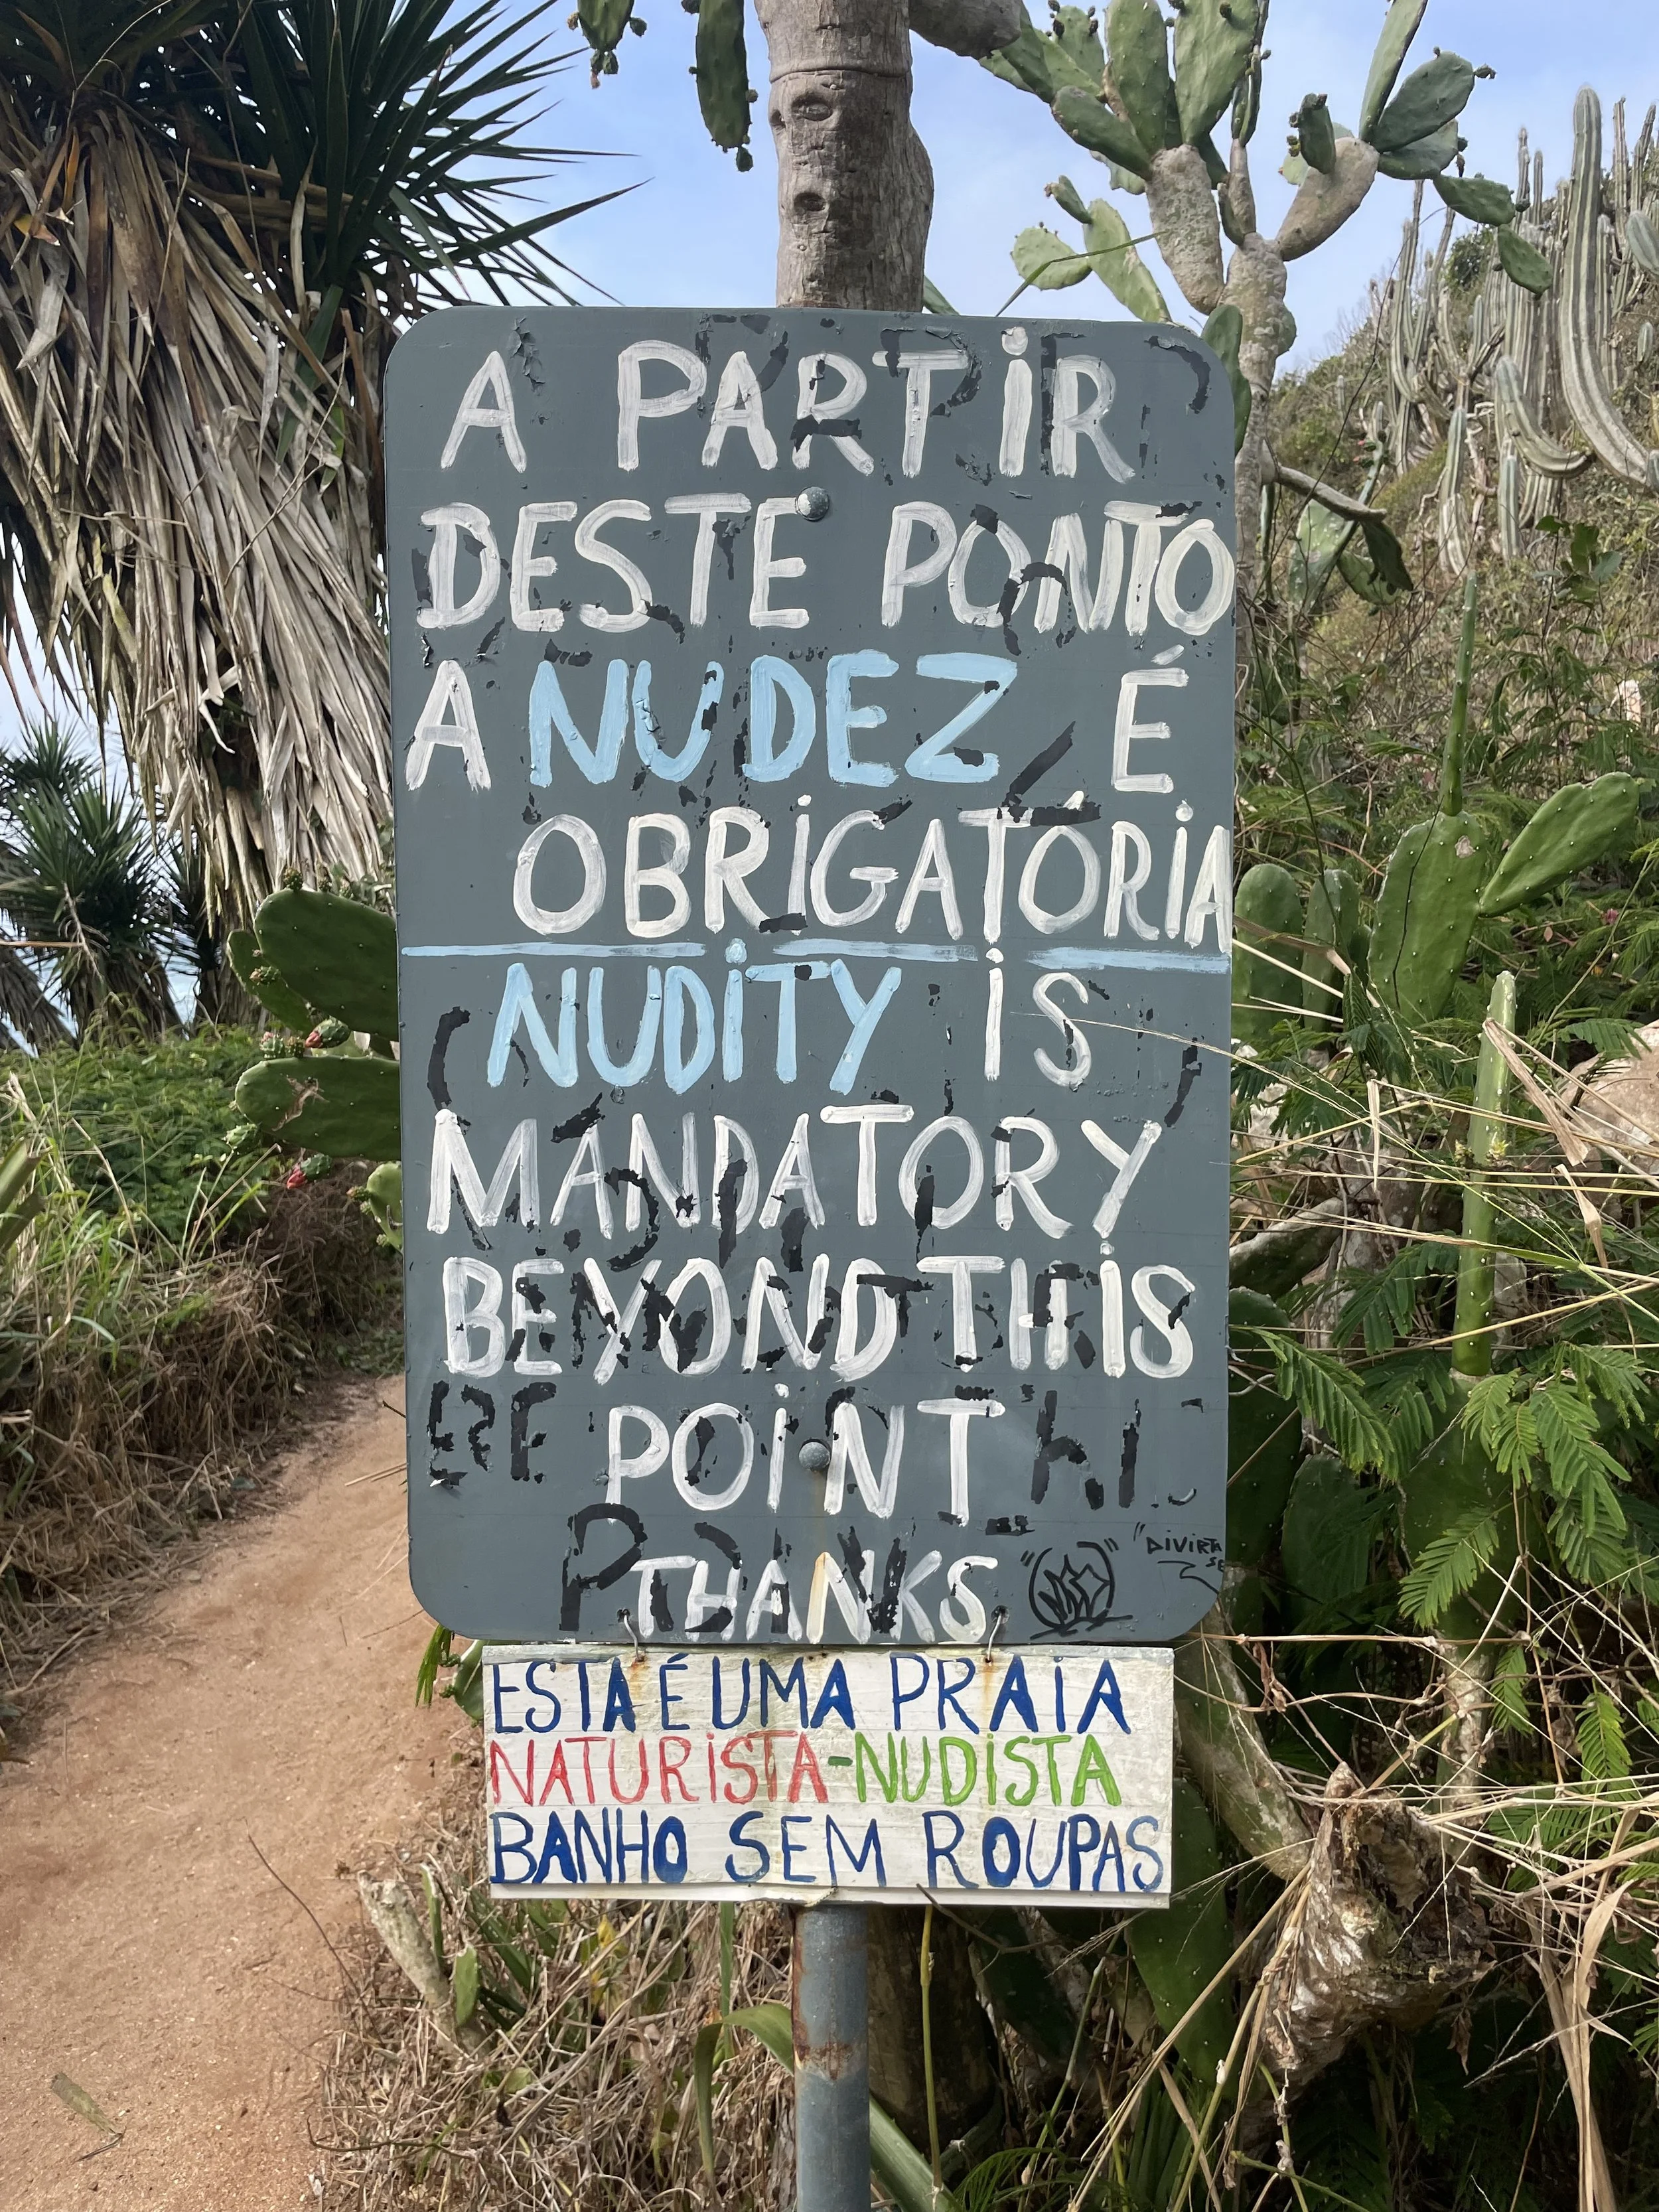 A PARTIR
DESTE PONTO
A NUDEZ É
OBRIGATÓRIA
NUDITY IS
MANDATORY
BEYOND THIS
POINT
THANKS
"DIVIRTA
SE
ESTA É UMA PRAIA
NATURISTA-NUDISTA
BANHO SEM ROUPAS